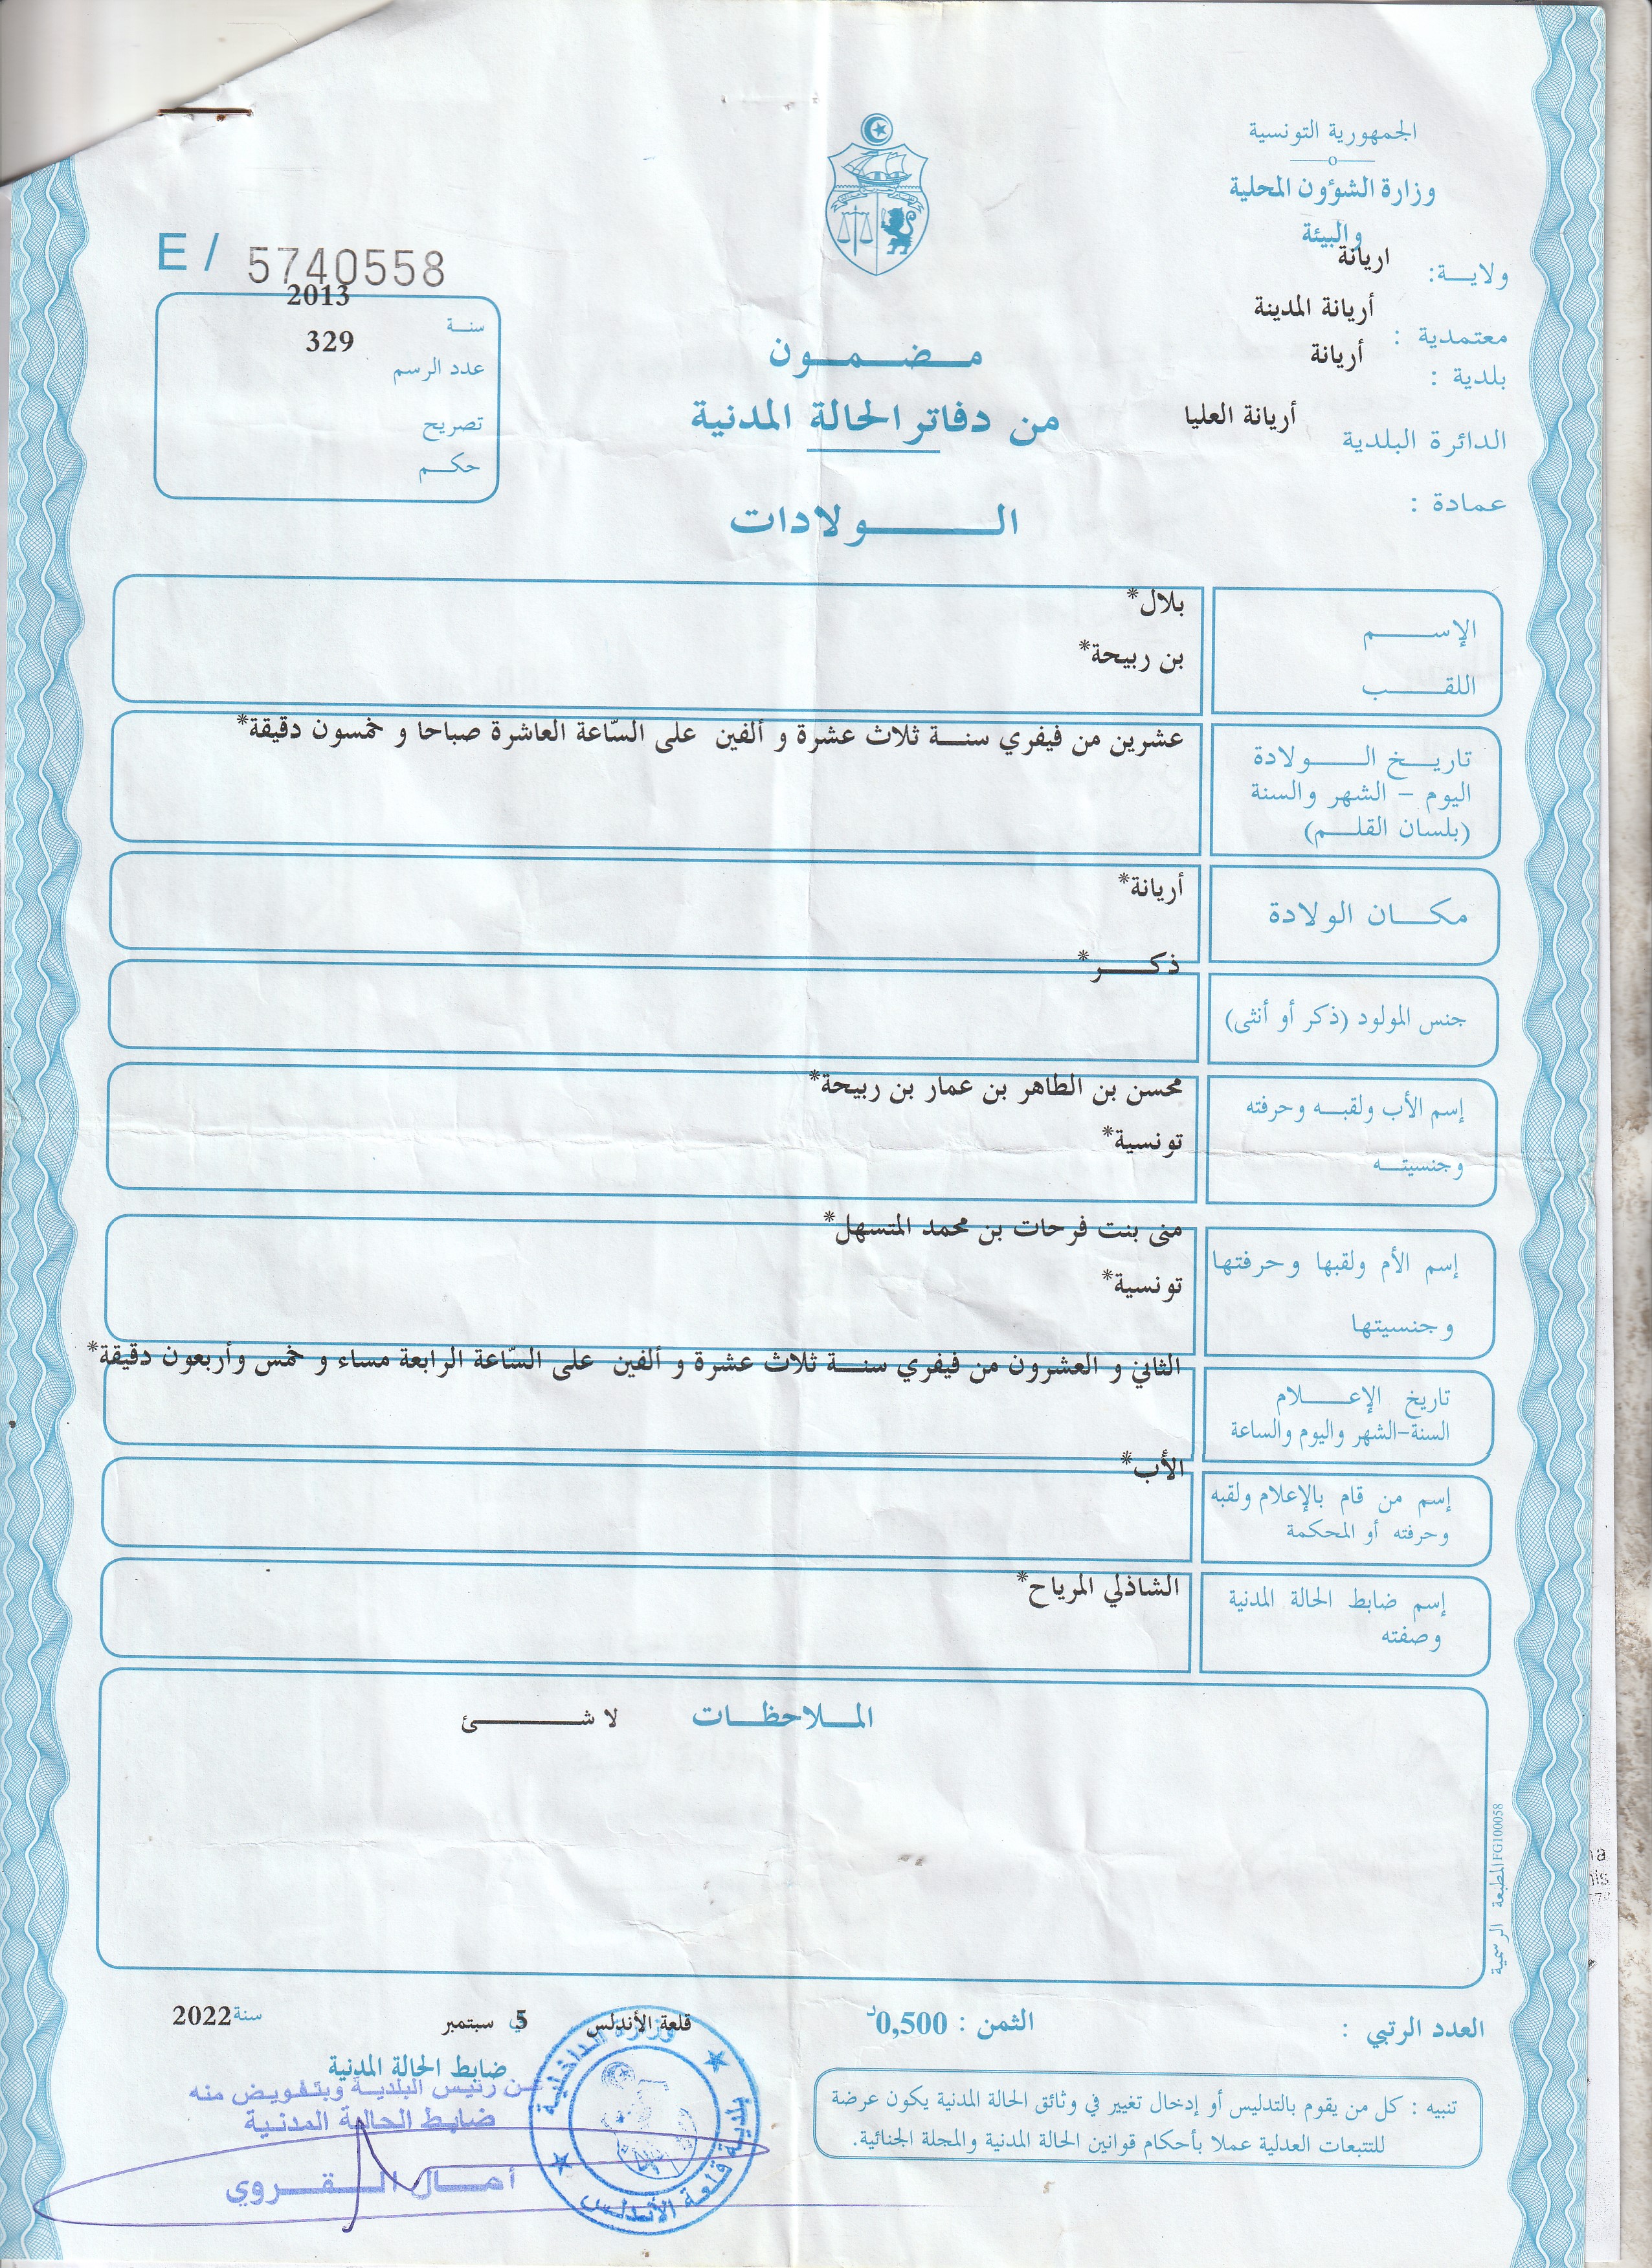 الجمهورية التونسية
وزارة الشؤون المحلية
والبيئة
ولايـــة: اريانة
معتمدية : أريانة المدينة
بلدية : أريانة
الدائرة البلدية أريانة العليا
عمادة :
E / 5740558
سنـــة 2013
عدد الرسم 329
تصريح
حكـــم
مـــضـــمـــون
من دفاتر الحالة المدنية
الـــــولادات
الإســـــم بلال*
اللقـــــب بن ربيحة*
تاريـــخ الـــــولادة
اليوم - الشهر والسنة
(بلسان القلـــم)
عشرين من فيفري سنـــة ثلاث عشرة و ألفين على السّاعة العاشرة صباحا و خمسون دقيقة*
مكـــان الولادة أريانة*
جنس المولود (ذكر أو أنثى) ذكـــــر*
إسم الأب ولقبـــه وحرفته محسن بن الطاهر بن عمار بن ربيحة*
وجنسيتـــه تونسية*
إسم الأم ولقبها وحرفتها منى بنت فرحات بن محمد المتسهل*
وجنسيتها تونسية*
تاريخ الإعـــــلام
السنة-الشهر واليوم والساعة
الثاني و العشرون من فيفري سنـــة ثلاث عشرة و ألفين على السّاعة الرابعة مساء و خمس وأربعون دقيقة*
إسم من قام بالإعلام ولقبه
وحرفته أو المحكمة
الأب*
إسم ضابط الحالة المدنية
وصفته
الشاذلي المرياح*
المـــلاحظـــات لا شـــــئ
المطبعة الرسمية FG100058
العدد الرتبي :
الثمن : 0,500د
قلعة الأندلس في 5 سبتمبر سنة 2022
ضابط الحالة المدنية
عن رئيس البلدية وبتفويض منه
ضابط الحالة المدنية
أمـــال الـــقـــروي
وزارة الداخلية
بلدية قلعة الأندلس
تنبيه : كل من يقوم بالتدليس أو إدخال تغيير في وثائق الحالة المدنية يكون عرضة
للتتبعات العدلية عملا بأحكام قوانين الحالة المدنية والمجلة الجنائية.